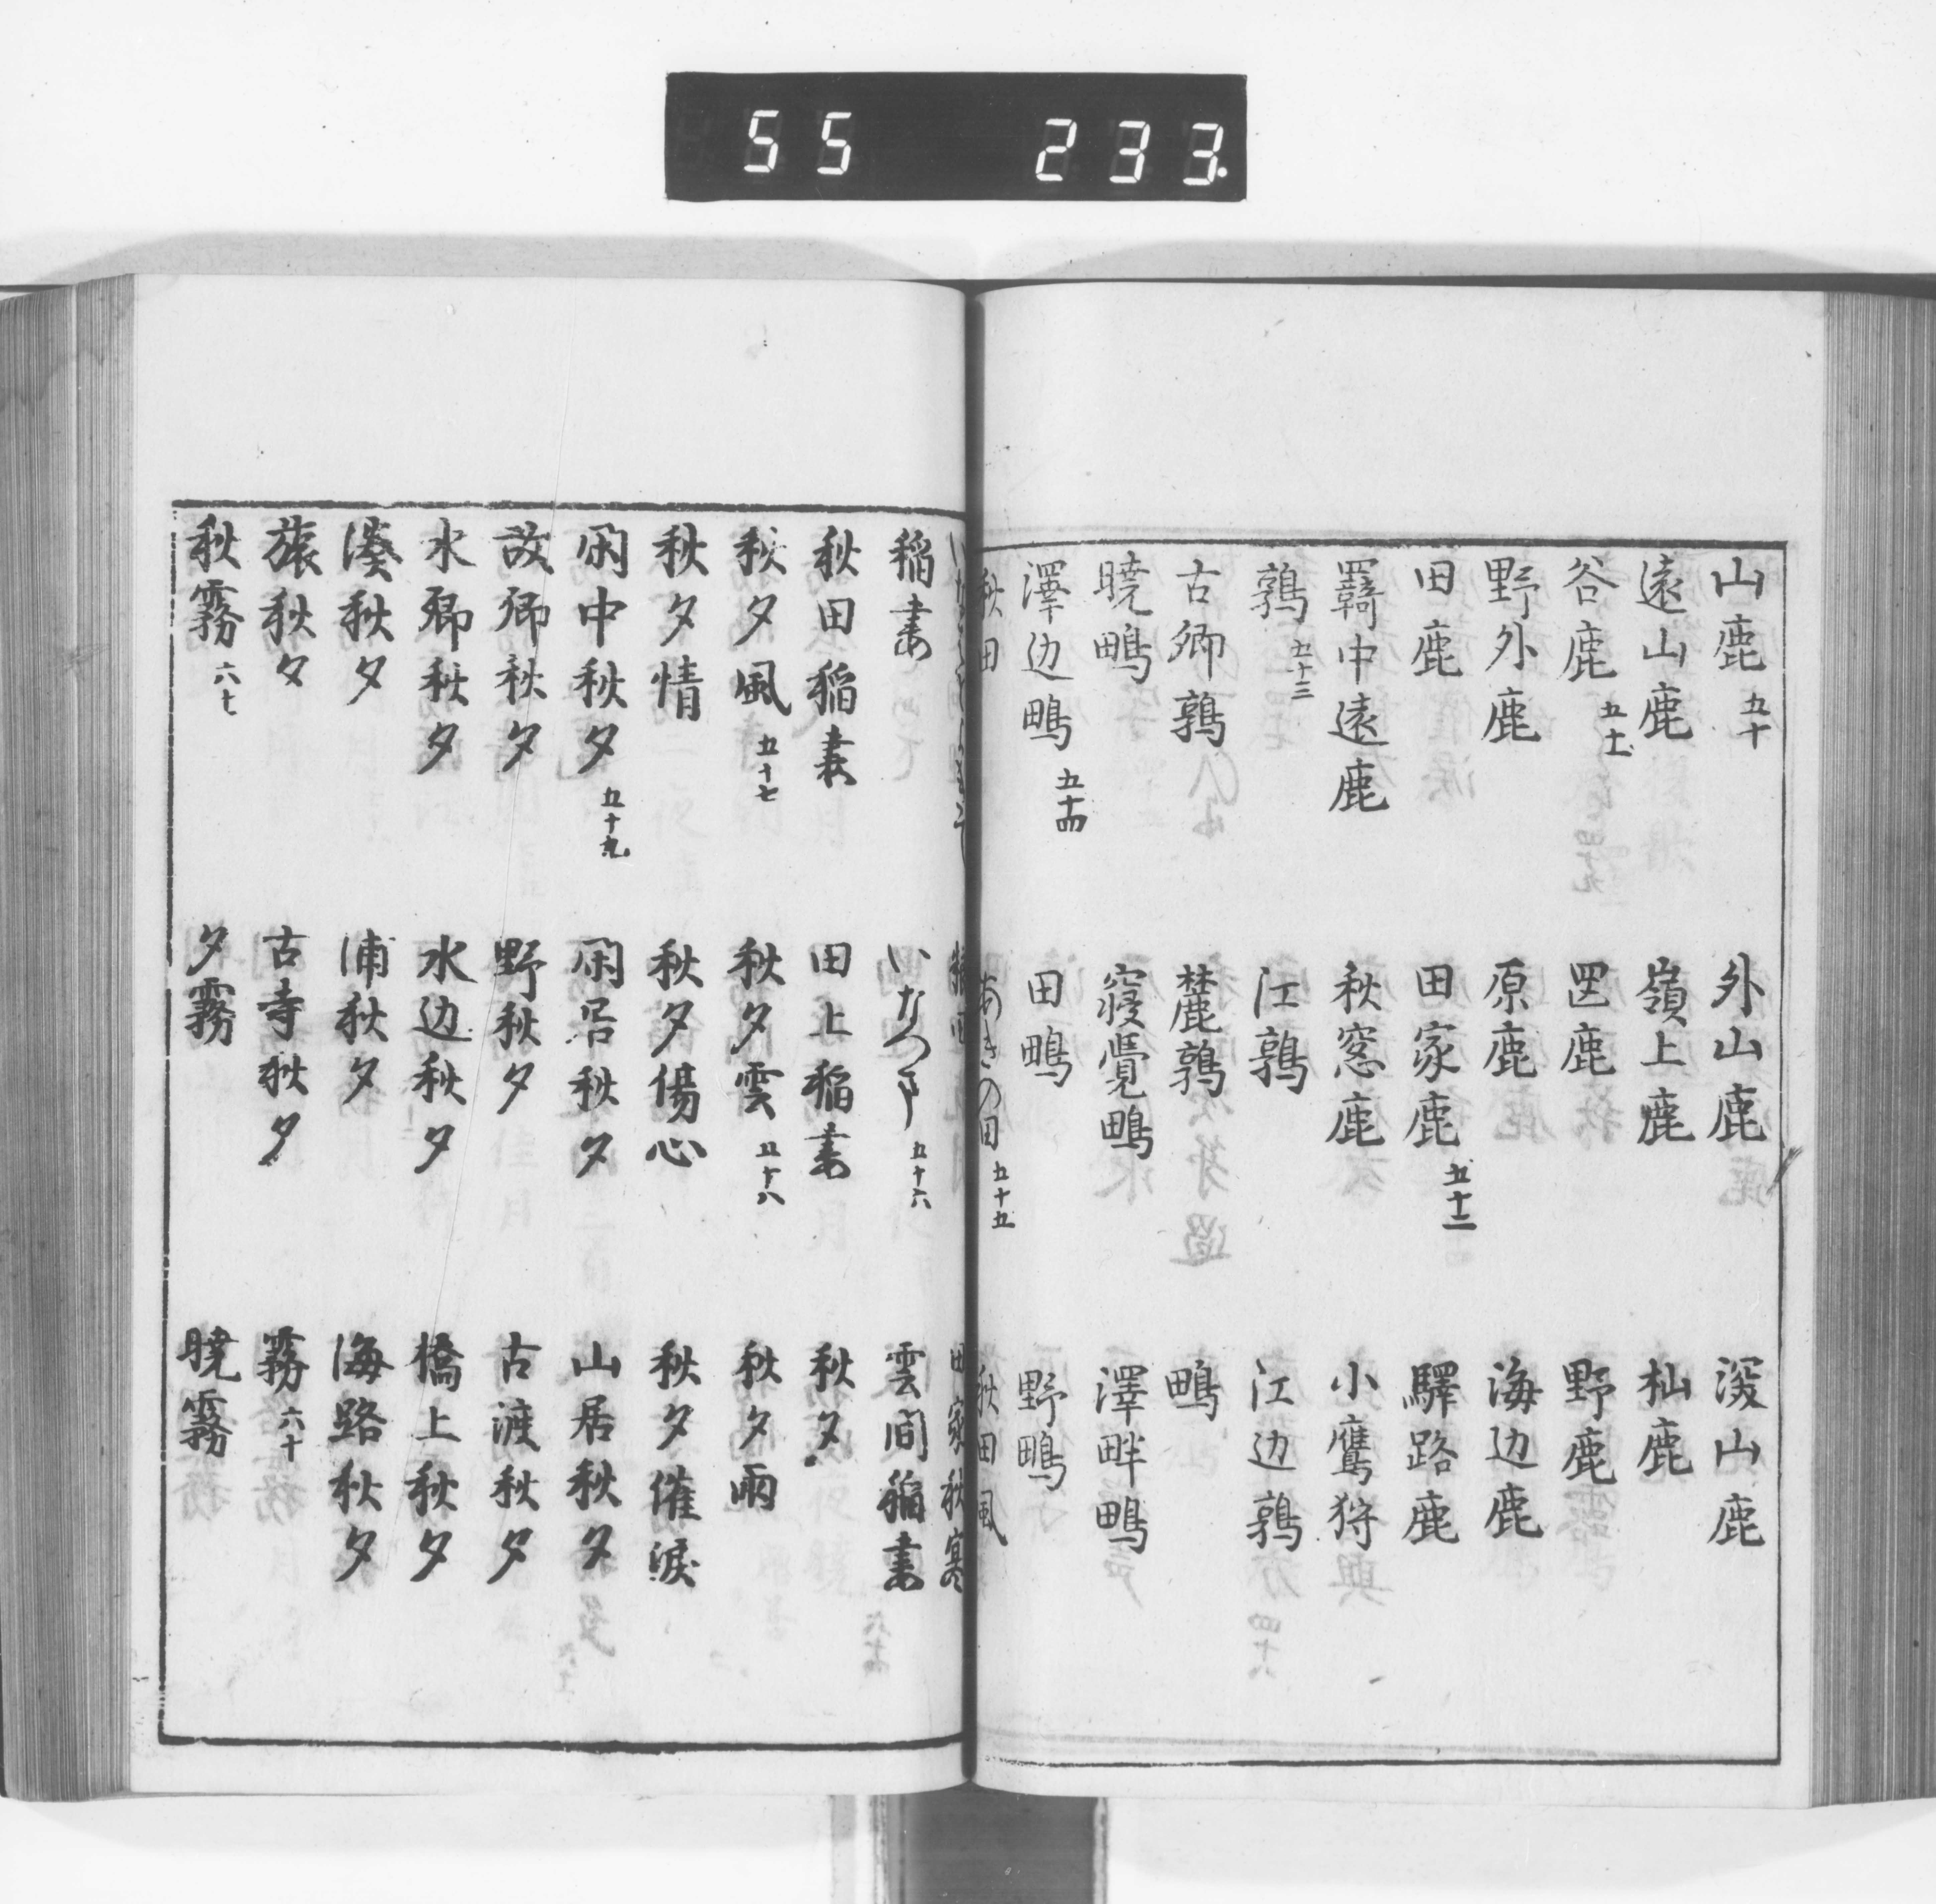 55 233
山鹿 五十 外山鹿 深山鹿
遠山鹿 嶺上鹿 杣鹿
谷鹿 五十一 罡鹿 野鹿
野外鹿 原鹿 海辺鹿
田鹿 田家鹿 五十二 驛路鹿
羇中遠鹿 秋窓鹿 小鷹狩
鶉 五十三 江鶉 江辺鶉
古郷鶉 麓鶉 鴫
暁鴫 寝覺鴫 澤畔鴫
澤辺鴫 五十四 田鴫 野鴫
秋田 あきの田 五十五 秋田風
田家秋寒
稲妻 いなつま 五十六 雲間稲妻
秋田稲妻 田上稲妻 秋夕
秋夕風 五十七 秋夕雲 五十八 秋夕雨
秋夕情 秋夕傷心 秋夕催淚
閑中秋夕 五十九 閑居秋夕 山居秋夕
故郷秋夕 野秋夕 古渡秋夕
水郷秋夕 水辺秋夕 橋上秋夕
湊秋夕 浦秋夕 海路秋夕
旅秋夕 古寺秋夕 霧 六十
秋霧 六十一 夕霧 暁霧